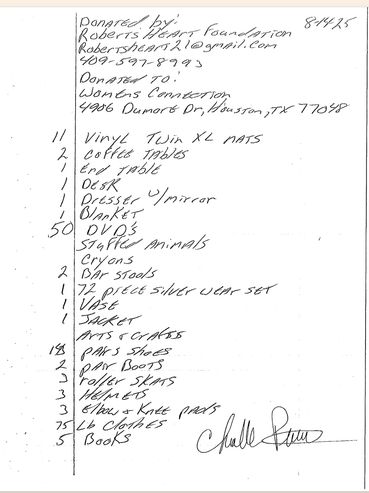 Donated by: 8-14-25
Roberts Heart Foundation
Robertsheart21@gmail.com
409-597-8993
Donated To:
Womens Connection
4906 Dumore Dr, Houston, TX 77048
11 Vinyl Twin XL mats
2 Coffee Tables
1 End Table
1 Desk
1 Dresser w/mirror
1 Blanket
50 DVD's
Stuffed Animals
Cryons
2 Bar stools
1 72 piece silver wear set
1 Vase
1 Jacket
Arts & Crafts
pairs Shoes
2 pair Boots
3 roller skats
3 Helmets
3 Elbow & Knee pads
75 Lb Clothes
5 Books